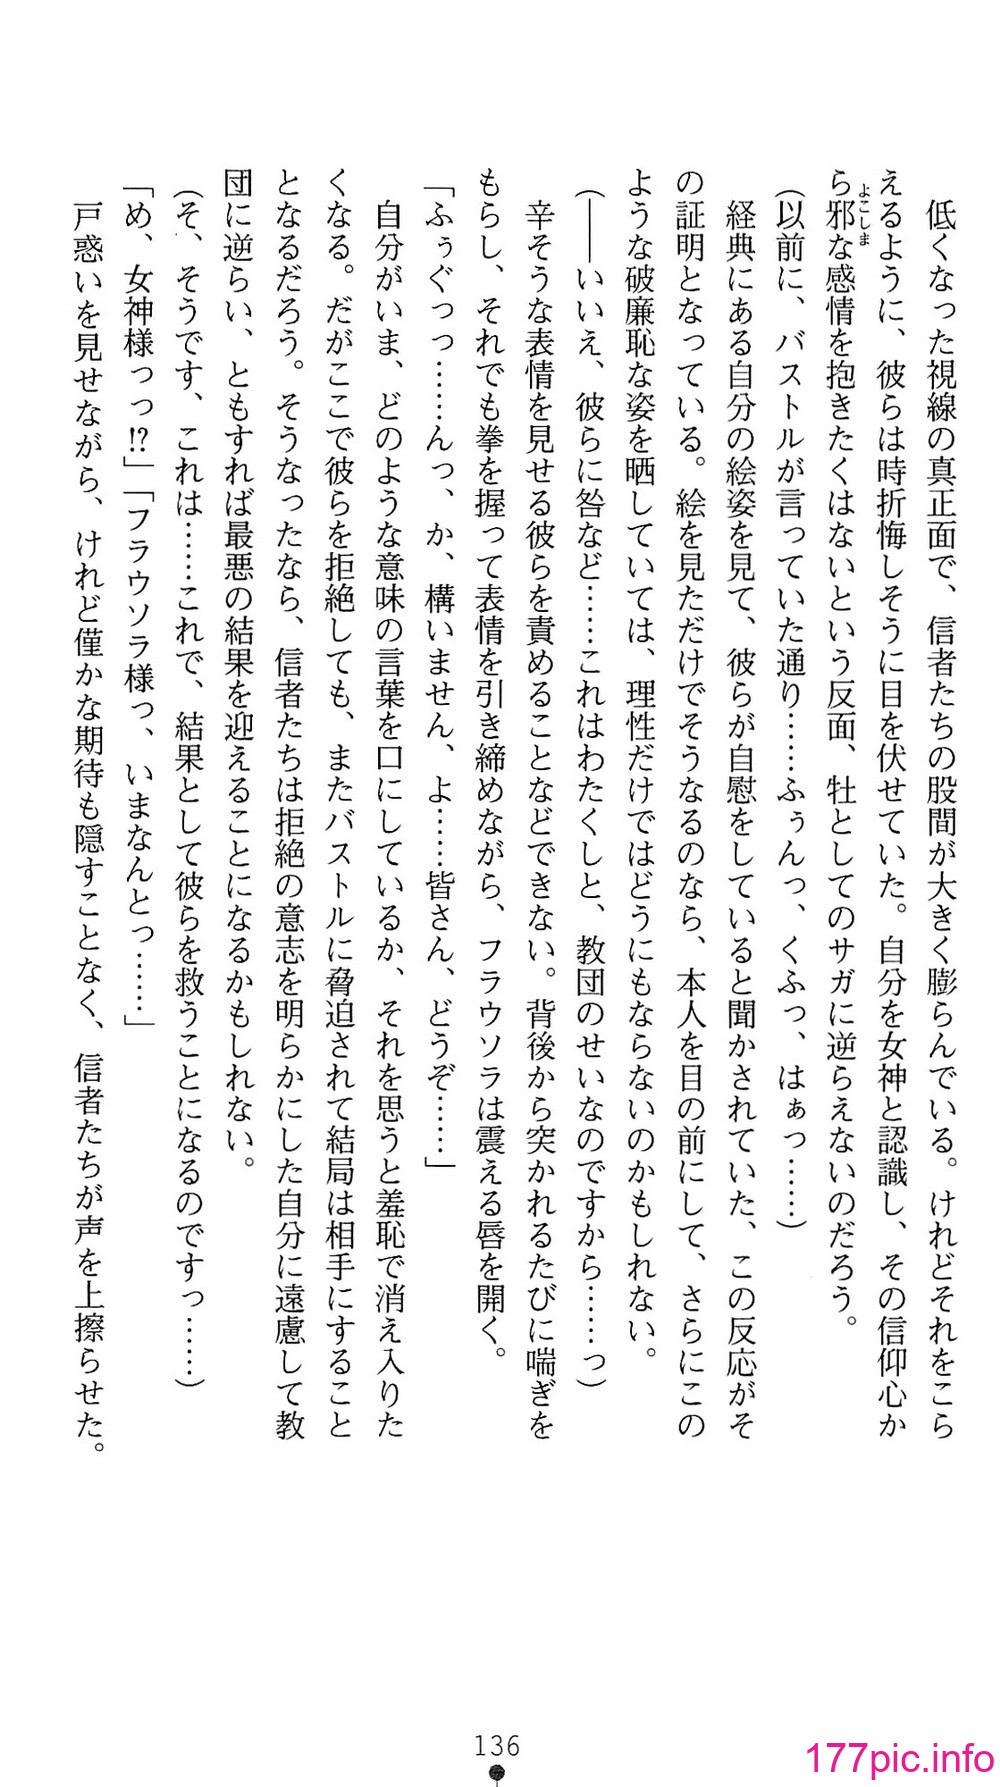 低くなった視線の真正面で、信者たちの股間が大きく膨らんでいる。けれどそれをこら
えるように、彼らは時折悔しそうに目を伏せていた。自分を女神と認識し、その信仰心か
ら邪な感情を抱きたくはないという反面、牡としてのサガに逆らえないのだろう。
よこしま
(以前に、バストルが言っていた通り……ふぅんっ、くふっ、はぁっ……)
経典にある自分の絵姿を見て、彼らが自慰をしていると聞かされていた、この反応がそ
の証明となっている。絵を見ただけでそうなるのなら、本人を目の前にして、さらにこの
ような破廉恥な姿を晒していては、理性だけではどうにもならないのかもしれない。
(――いいえ、彼らに咎など……これはわたくしと、教団のせいなのですから……っ)
辛そうな表情を見せる彼らを責めることなどできない。背後から突かれるたびに喘ぎを
もらし、それでも拳を握って表情を引き締めながら、フラウソラは震える唇を開く。
「ふぅぐっっ……んっ、か、構いません、よ……皆さん、どうぞ……」
自分がいま、どのような意味の言葉を口にしているか、それを思うと羞恥で消え入りた
くなる。だがここで彼らを拒絶しても、またバストルに脅迫されて結局は相手にすること
となるだろう。そうなったなら、信者たちは拒絶の意志を明らかにした自分に遠慮して教
団に逆らい、ともすれば最悪の結果を迎えることになるかもしれない。
(そ、そうです、これは……これで、結果として彼らを救うことになるのですっ……)
「め、女神様っっ!?」「フラウソラ様っ、いまなんとっ……」
戸惑いを見せながら、けれど僅かな期待も隠すことなく、信者たちが声を上擦らせた。
136
177pic.info